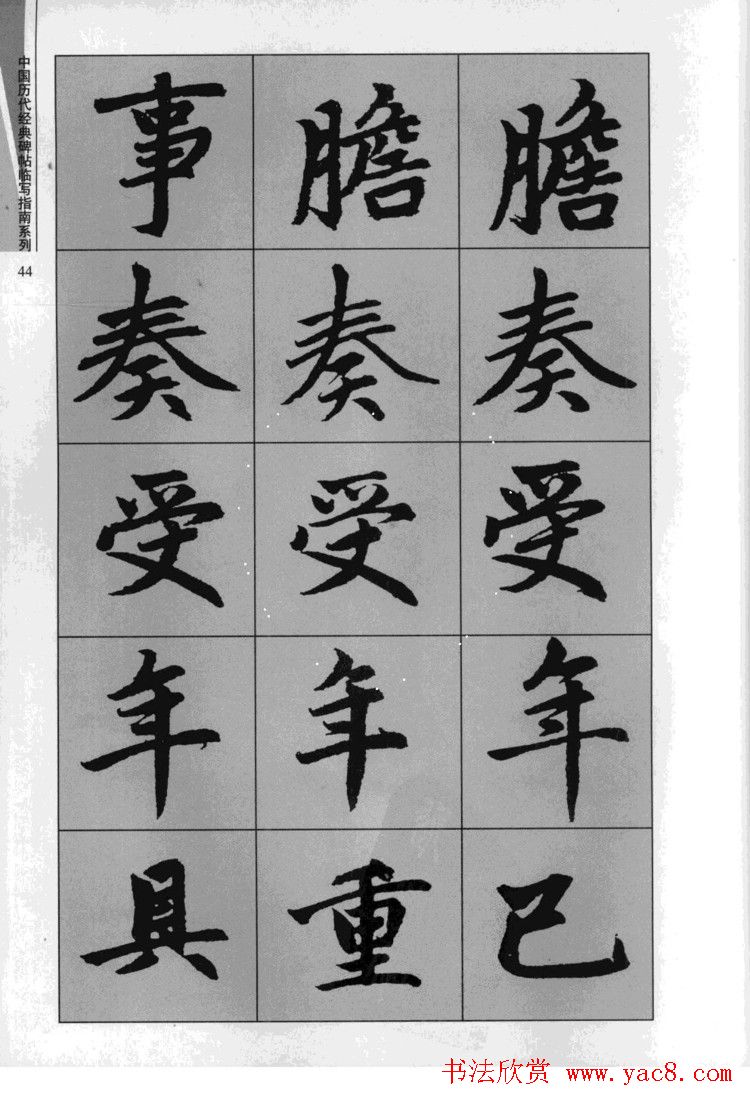 中国历代经典碑帖临写指南系列
44
事 膽 膽
奏 奏 奏
受 受 受
年 年 年
具 重 己
书法欣赏 www.yac8.com